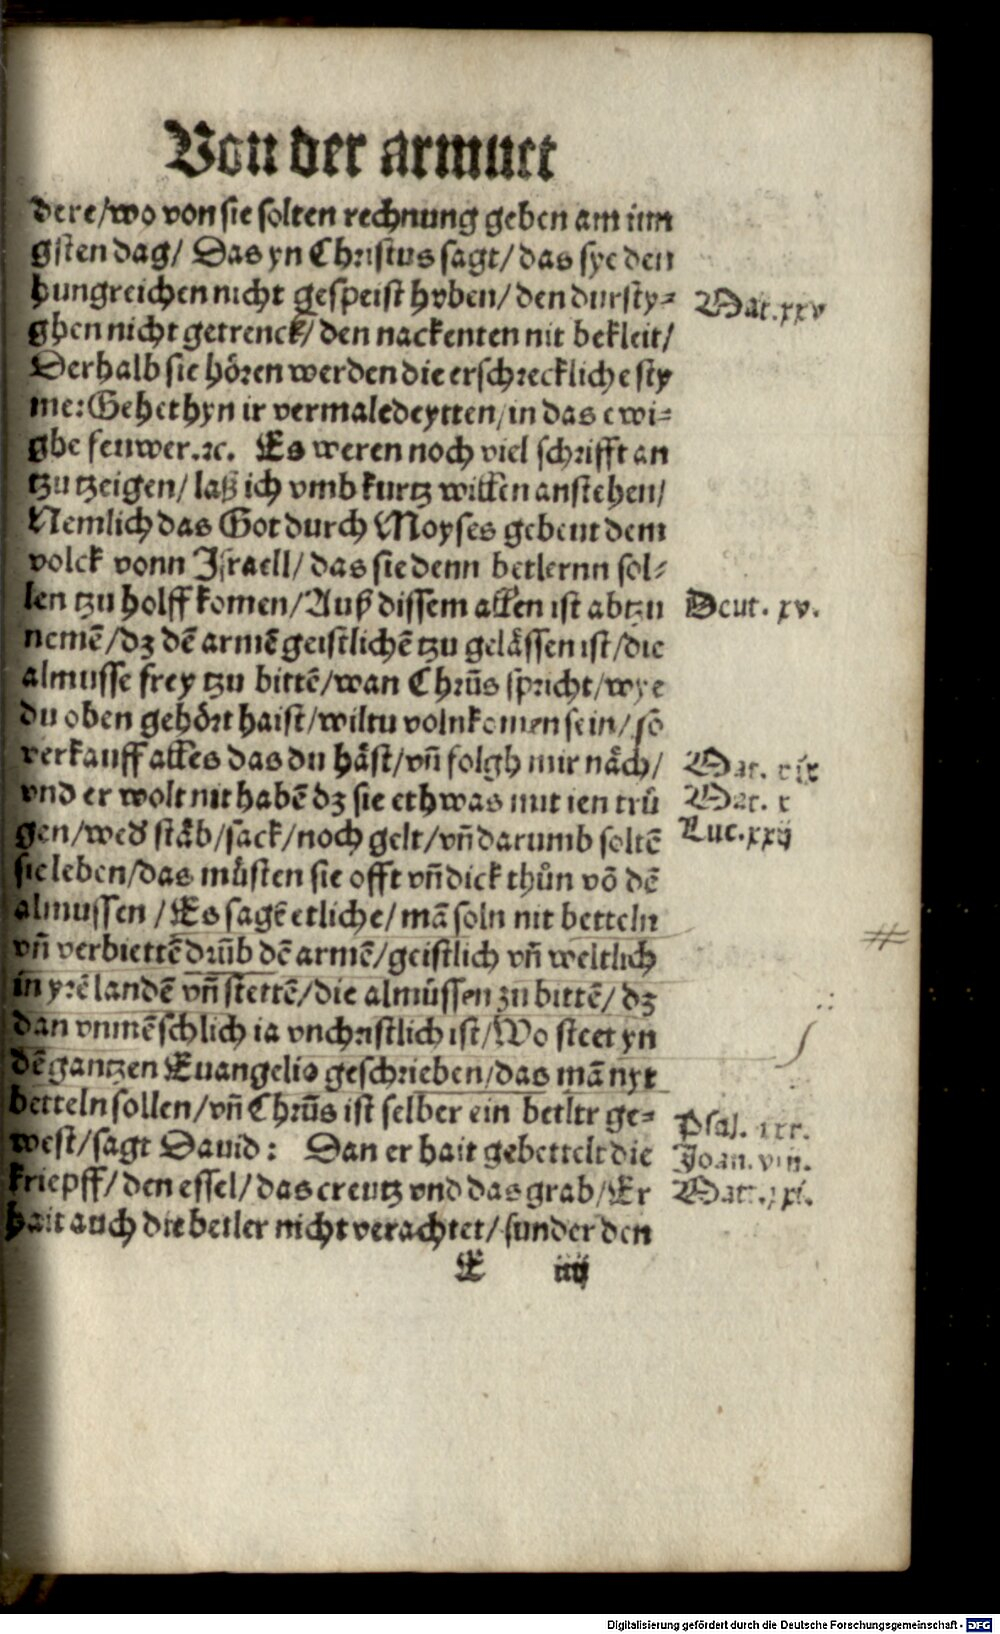 Von der armuet
dere/wo von sie solten rechnung geben am iun
gsten dag/ Das yn Christus sagt/das sye den
hungreichen nicht gespeist hvben/den dursty⸗
ghen nicht getrenck/den nackenten nit bekleit/
Derhalb sie hören werden die erschreckliche sty
me:Gehet hyn ir vermaledeytten/in das ewi⸗
ghe feuwer.ꝛc. Es weren noch viel schrifft an
tzu tzeigen/laß ich vmb kurtz willen anstehen/
Nemlich das Got durch Moyses gebeut dem
volck vonn Israell/das sie denn betlernn sol⸗
len tzu holff komen/Auß dissem allen ist abtzu
nemē/dz dē armē geistlichē tzu gelässen ist/die
almusse frey tzu bittē/wan Chrūs spricht/wye
du oben gehört haist/wiltu volnkomen sein/so
verkauff alles das du häst/vn̄ folgh mir näch/
vnd er wolt nit habē dz sie ethwas mit ien trů
gen/wed' ståb/sack/noch gelt/vn̄ darumb soltē
sie leben/das můsten sie offt vn̄ dick thůn vō dē
almussen /Es sagē etliche/mā soln nit betteln
vn̄ verbiettē drūb dē armē/geistlich vn̄ weltlich
in yrē landē vn̄ stettē/die almůssen zu bittē/dz
dan vnmēschlich ia vnchristlich ist/Wo steet yn
dē gantzen Euangelio geschrieben/das mā nyt
betteln sollen/vn̄ Chrūs ist selber ein betltr ge⸗
west/sagt Dauid: Dan er hait gebettelt die
kriepff/den essel/das creutz vnd das grab/Er
hait auch die betler nicht verachtet/sunder den
E iiij
Mat.xxv
Deut. xv.
Mat. xix
Mat. x
Luc.xxij
Psal.
Joan. viij.
Matt. xxi.
Digitalisierung gefördert durch die Deutsche Forschungsgemeinschaft - DFG